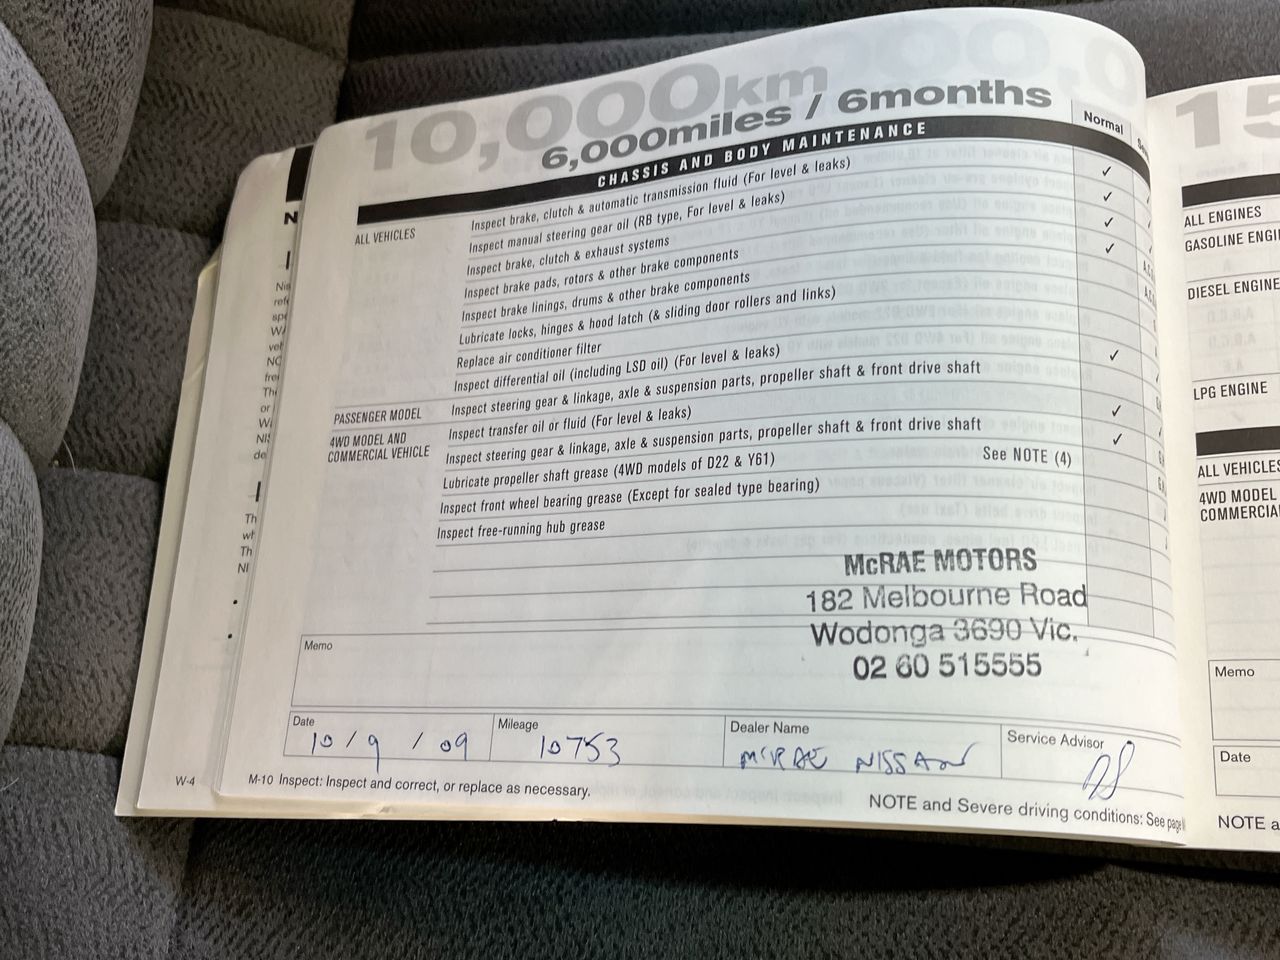 10,000km
6,000miles / 6months
Normal
CHASSIS AND BODY MAINTENANCE
ALL VEHICLES
Inspect brake, clutch & automatic transmission fluid (For level & leaks) ✓
Inspect manual steering gear oil (RB type, For level & leaks) ✓
Inspect brake, clutch & exhaust systems ✓
Inspect brake pads, rotors & other brake components ✓
Inspect brake linings, drums & other brake components
Lubricate locks, hinges & hood latch (& sliding door rollers and links)
Replace air conditioner filter
Inspect differential oil (including LSD oil) (For level & leaks) ✓
PASSENGER MODEL
Inspect steering gear & linkage, axle & suspension parts, propeller shaft & front drive shaft
4WD MODEL AND
COMMERCIAL VEHICLE
Inspect transfer oil or fluid (For level & leaks) ✓
Inspect steering gear & linkage, axle & suspension parts, propeller shaft & front drive shaft ✓
Lubricate propeller shaft grease (4WD models of D22 & Y61) See NOTE (4)
Inspect front wheel bearing grease (Except for sealed type bearing)
Inspect free-running hub grease
McRAE MOTORS
182 Melbourne Road
Wodonga 3690 Vic.
02 60 515555
Memo
Date
10 / 9 / 09
Mileage
10753
Dealer Name
McRAE NISSAN
Service Advisor
W-4
M-10 Inspect: Inspect and correct, or replace as necessary.
NOTE and Severe driving conditions: See page
15
ALL ENGINES
GASOLINE ENGI
DIESEL ENGINE
LPG ENGINE
ALL VEHICLES
4WD MODEL
COMMERCIA
Memo
Date
NOTE a